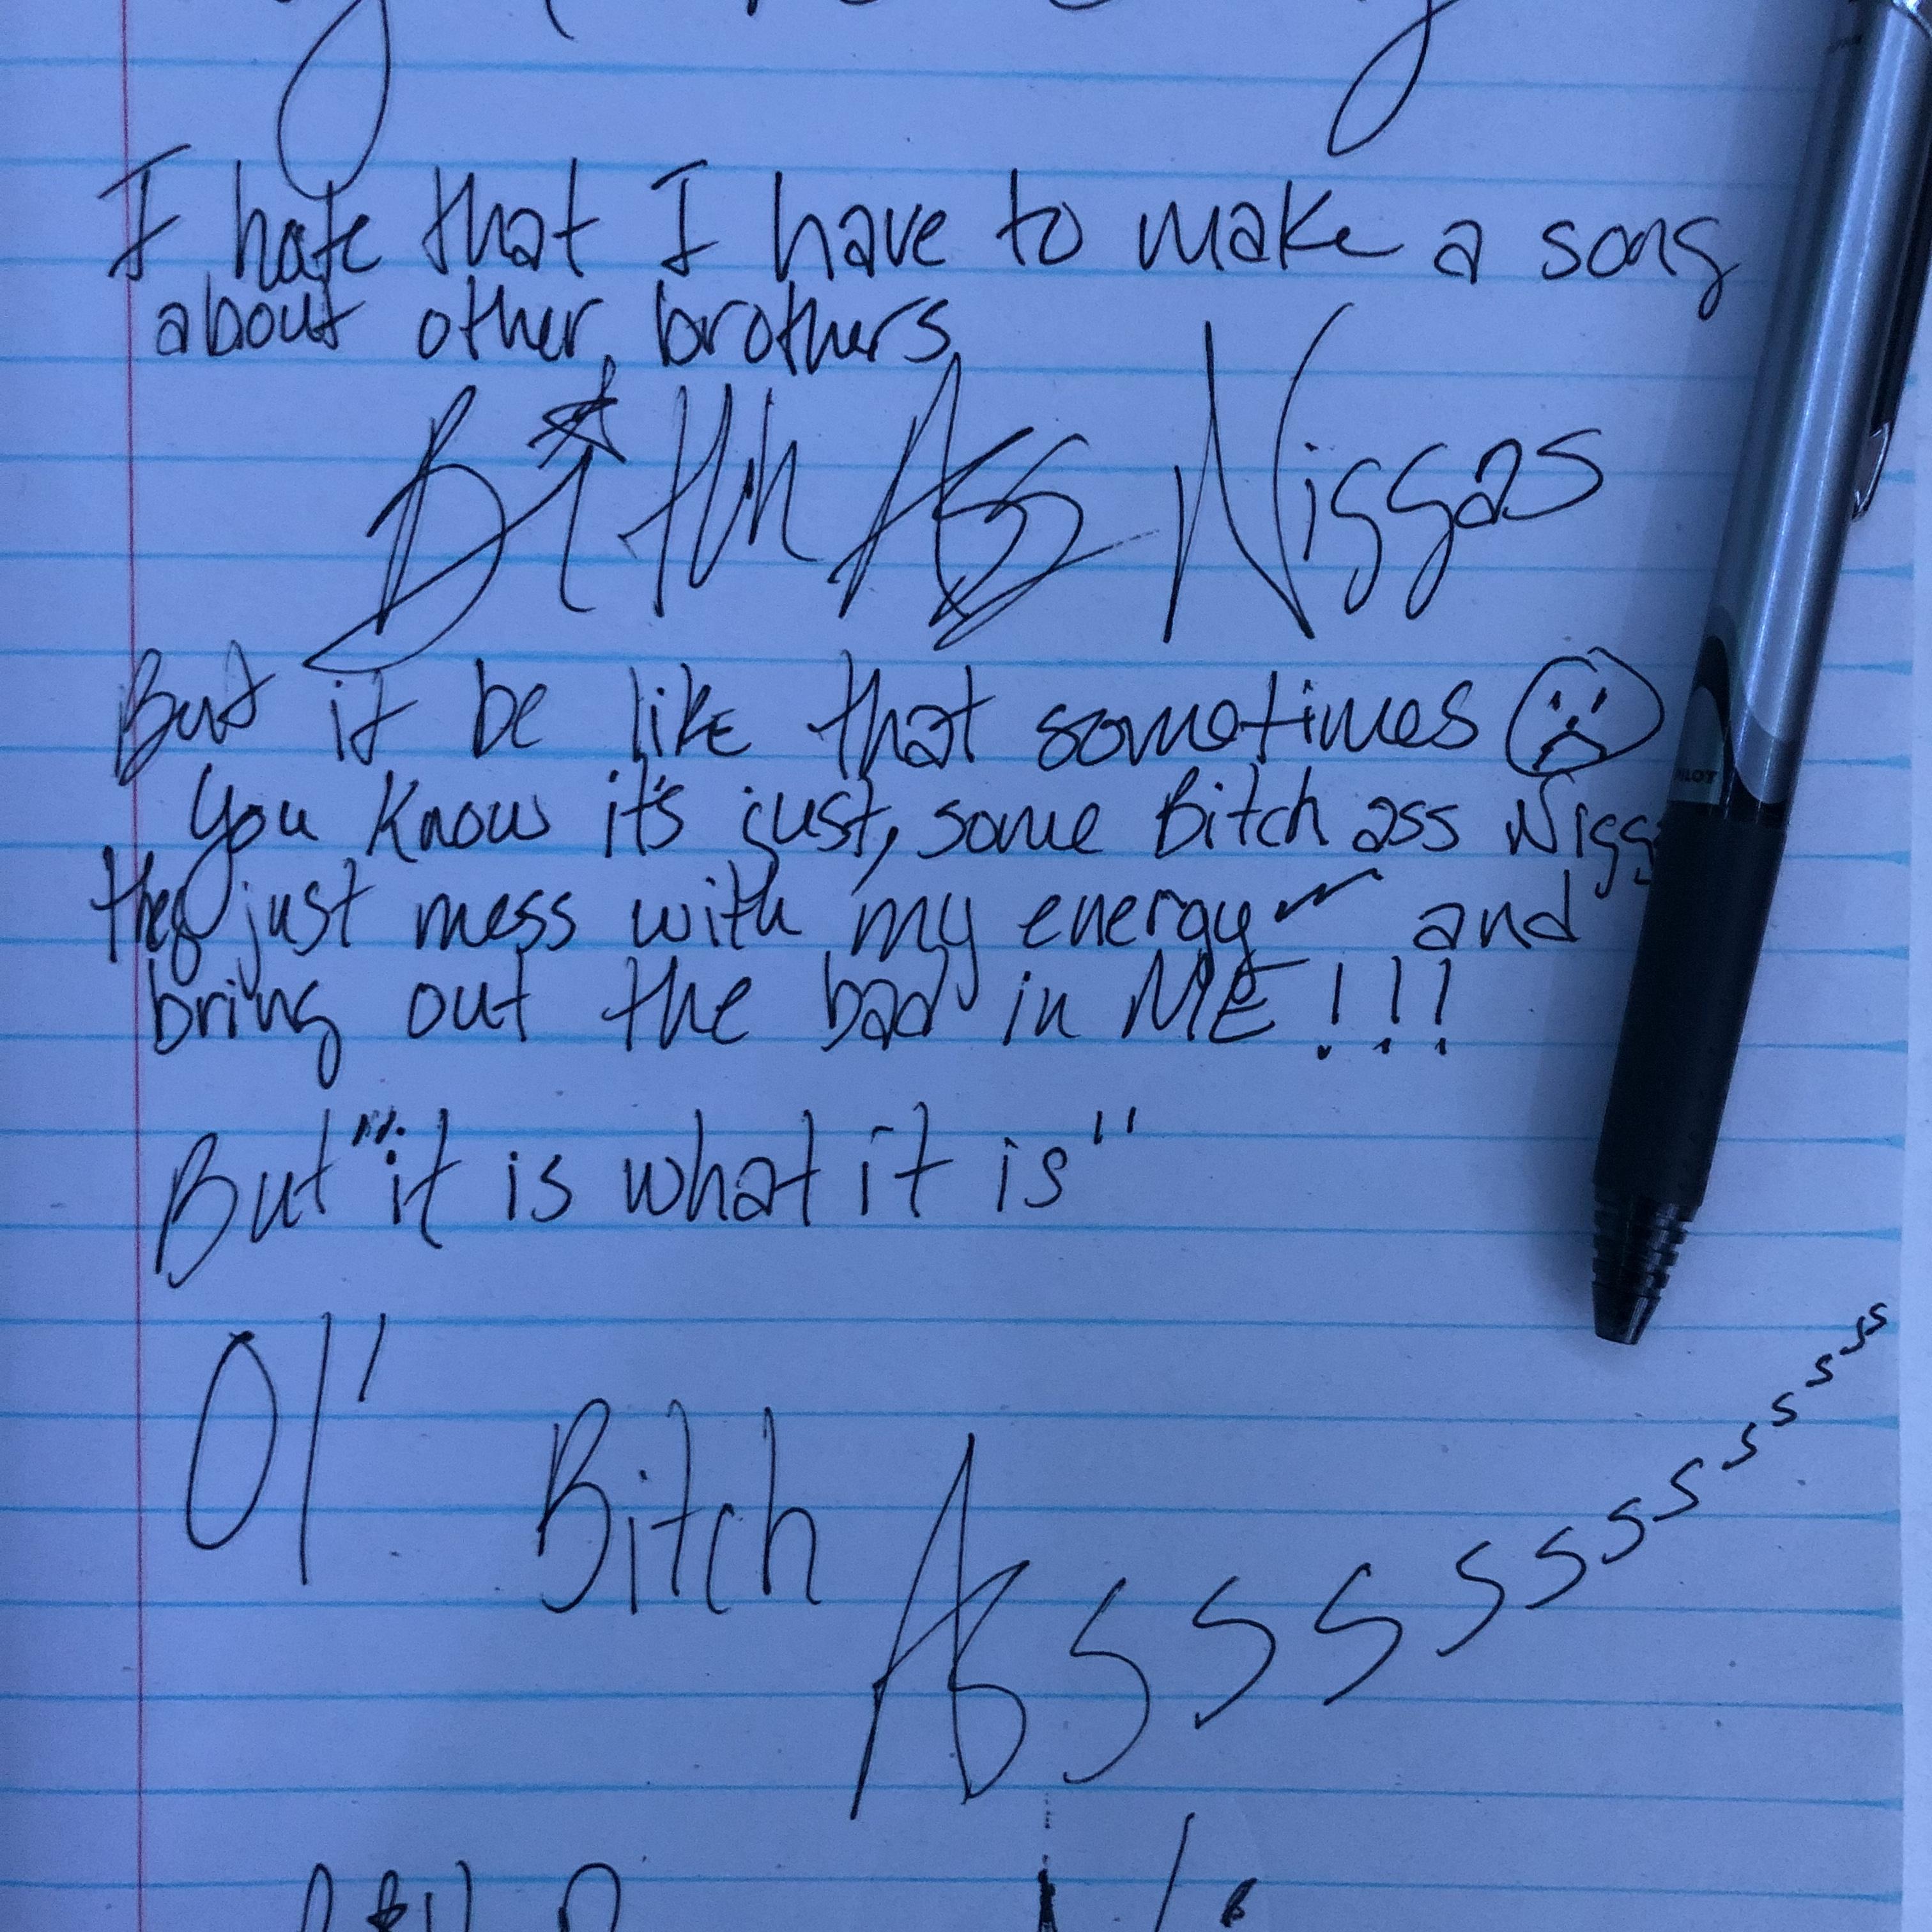 I hate that I have to make a song
about other, brothers
Bitch Ass Niggas
But it be like that sometimes
You know it's just, some Bitch ass Nigg
they just mess with my energy and
bring out the bad in ME!!!
But "it is what it is"
Ol'
Bitch Assssssssssssss
PILOT